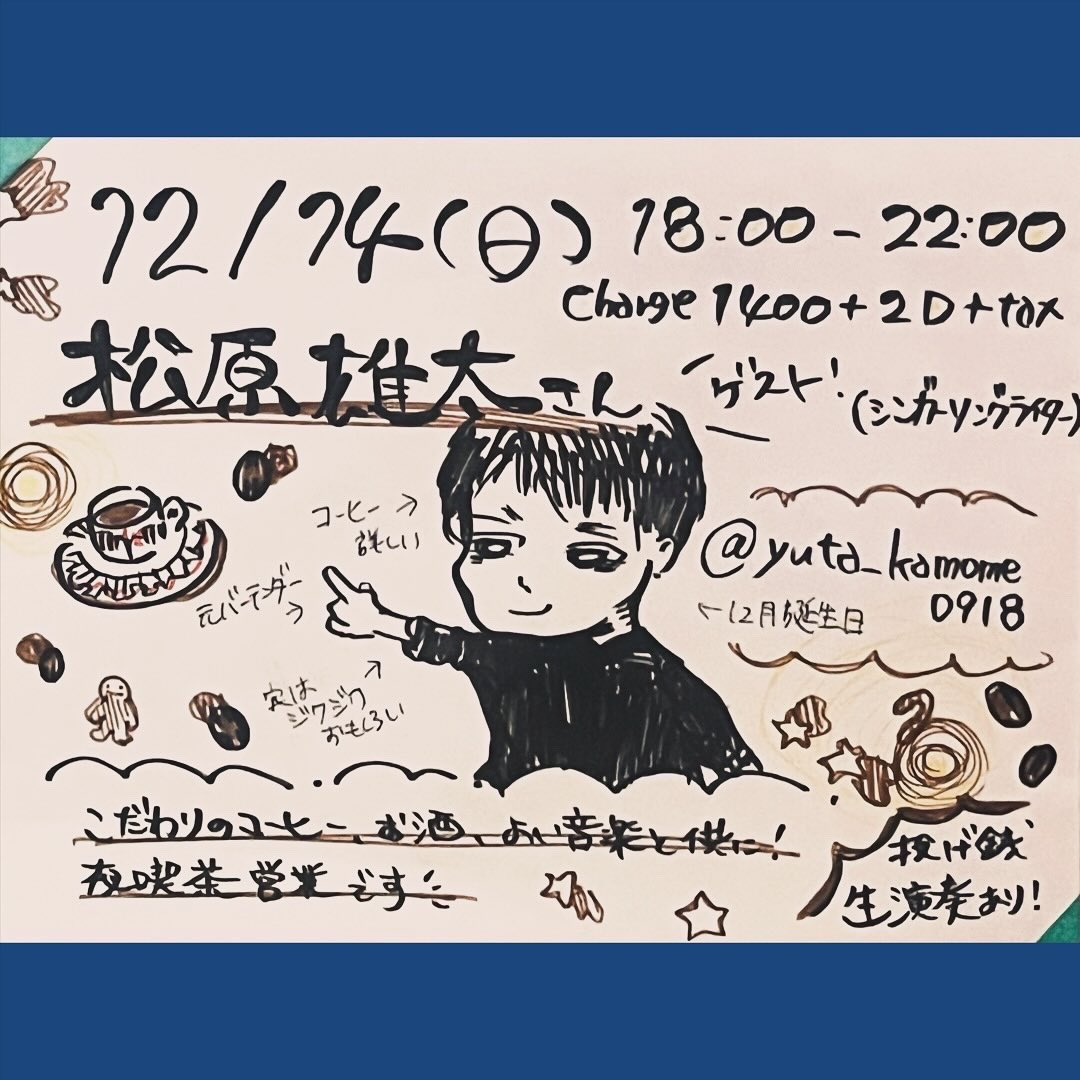 12/14(日) 18:00-22:00
Charge 1400+2D+tax
松原雄太さん
ゲスト!
(シンガーソングライター)
コーヒー→
詳しい
元バーテンダー
→
実は
ジワジワ
おもしろい
@yuta_kamome
0918
←12月誕生日
こだわりのコーヒー、お酒、よい音楽と供に!
夜喫茶営業です!
投げ銭
生演奏あり!